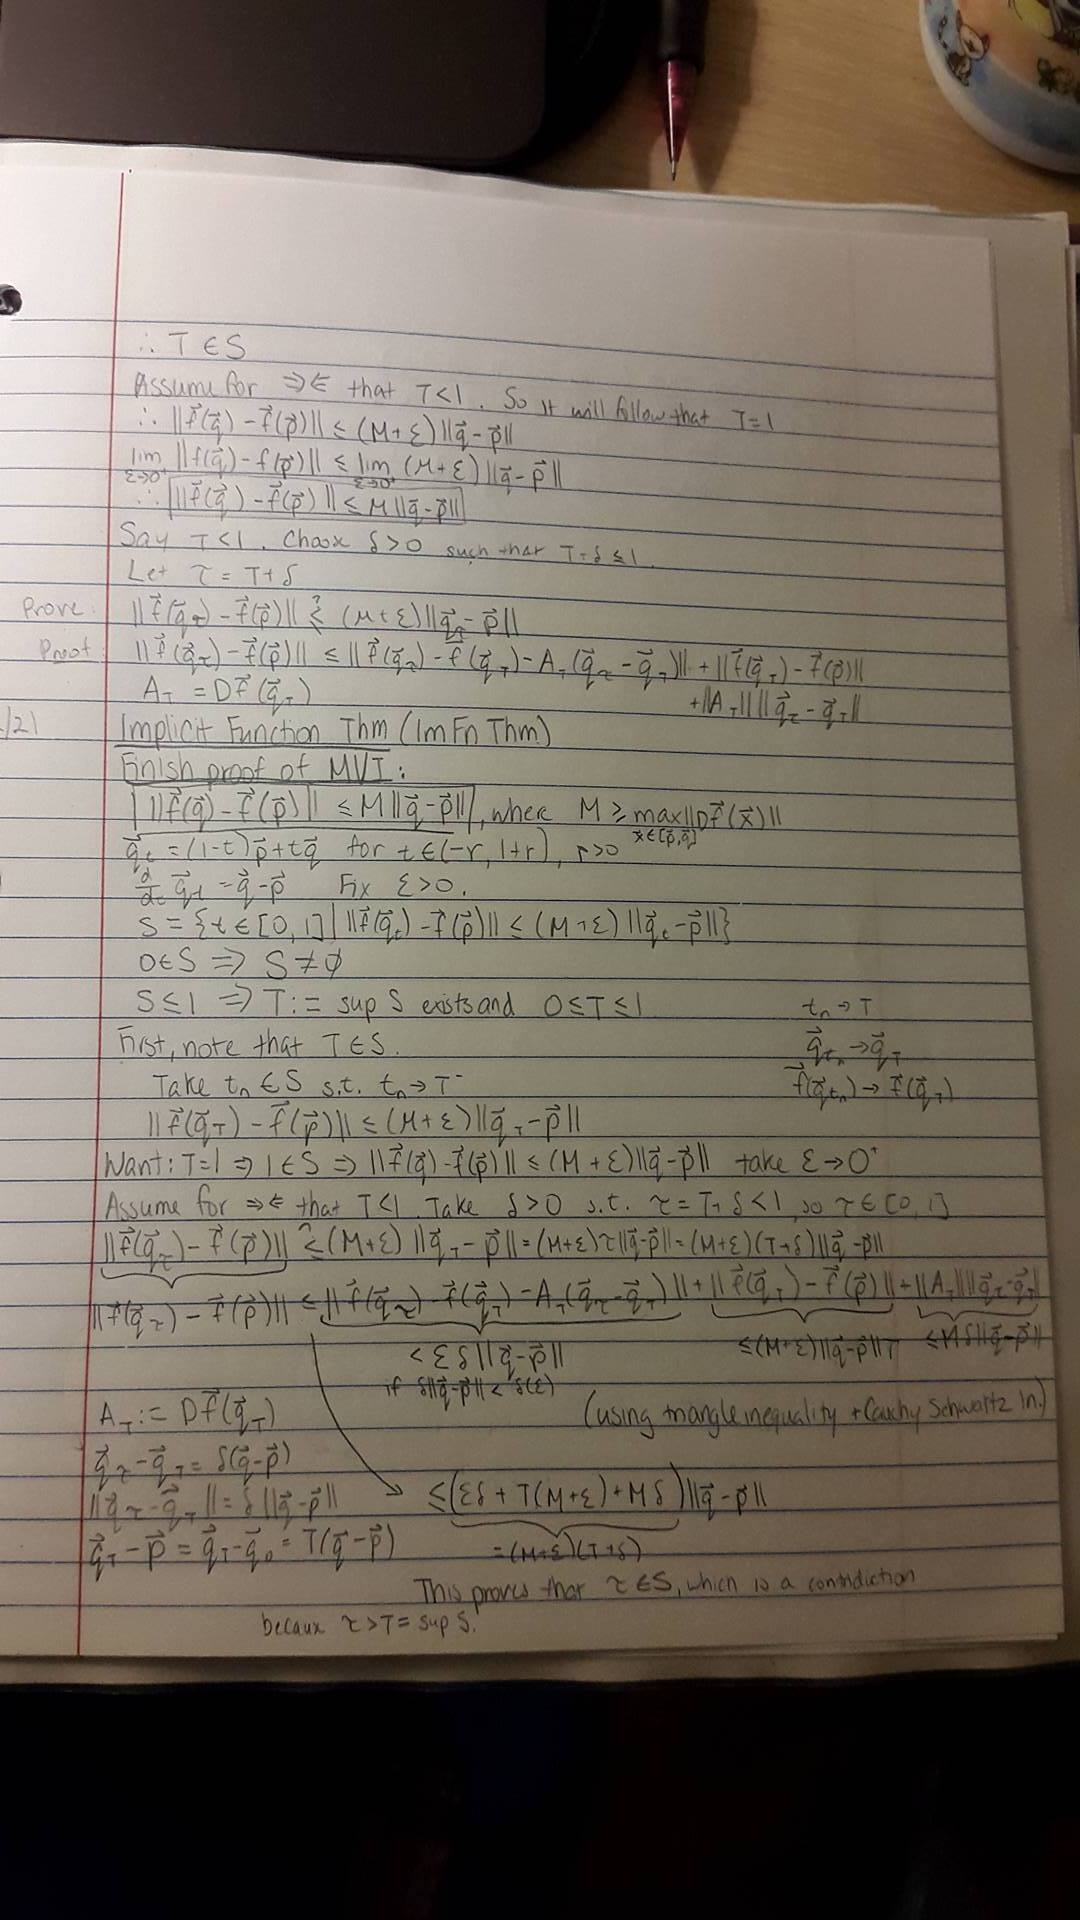 ∴ T ∈ S
Assume for ⇒⇐ that T<1. So it will follow that T=1
∴ ||f⃗(q⃗) - f⃗(p⃗)|| ≤ (M+ε)||q⃗-p⃗||
lim_{ε→0⁺} ||f(q⃗) - f(p⃗)|| ≤ lim_{ε→0⁺} (M+ε)||q⃗-p⃗||
∴ ||f⃗(q⃗) - f⃗(p⃗)|| ≤ M||q⃗-p⃗||
Say T<1. Choose δ>0 such that T+δ ≤ 1.
Let τ = T+δ
Prove: ||f⃗(q⃗_τ) - f⃗(p⃗)|| ≤? (M+ε)||q⃗_τ - p⃗||
Proof: ||f⃗(q⃗_τ) - f⃗(p⃗)|| ≤ ||f⃗(q⃗_τ) - f⃗(q⃗_T) - A_T(q⃗_τ - q⃗_T)|| + ||f⃗(q⃗_T) - f⃗(p⃗)||
A_T = Df⃗(q⃗_T) + ||A_T|| ||q⃗_τ - q⃗_T||
/21 Implicit Function Thm (ImFnThm)
Finish proof of MVI:
||f⃗(q⃗) - f⃗(p⃗)|| ≤ M||q⃗-p⃗||, where M ≥ max_{x⃗∈[p⃗,q⃗]} ||Df⃗(x⃗)||
q⃗_t = (1-t)p⃗+tq⃗ for t ∈ (-r, 1+r), r>0
d/dt q⃗_t = q⃗-p⃗ Fix ε>0.
S = {t ∈ [0,1] | ||f⃗(q⃗_t) - f⃗(p⃗)|| ≤ (M+ε)||q⃗_t - p⃗||}
0∈S ⇒ S ≠ ∅
S ≤ 1 ⇒ T := sup S exists and 0 ≤ T ≤ 1 t_n → T
First, note that T ∈ S. q⃗_{t_n} → q⃗_T
Take t_n ∈ S s.t. t_n → T⁻ f⃗(q⃗_{t_n}) → f⃗(q⃗_T)
||f⃗(q⃗_T) - f⃗(p⃗)|| ≤ (M+ε)||q⃗_T - p⃗||
Want: T=1 ⇒ 1∈S ⇒ ||f⃗(q⃗) - f⃗(p⃗)|| ≤ (M+ε)||q⃗-p⃗|| take ε→0⁺
Assume for ⇒⇐ that T<1. Take δ>0 s.t. τ = T+δ<1, so τ ∈ [0,1]
||f⃗(q⃗_τ) - f⃗(p⃗)|| ≤? (M+ε) ||q⃗_τ - p⃗|| = (M+ε)τ||q⃗-p⃗|| = (M+ε)(T+δ)||q⃗-p⃗||
||f⃗(q⃗_τ) - f⃗(p⃗)|| ≤ ||f⃗(q⃗_τ) - f⃗(q⃗_T) - A_T(q⃗_τ - q⃗_T)|| + ||f⃗(q⃗_T) - f⃗(p⃗)|| + ||A_T|| ||q⃗_τ - q⃗_T||
< εδ||q⃗-p⃗|| ≤ (M+ε)||q⃗-p⃗||T ≤ Mδ||q⃗-p⃗||
if δ||q⃗-p⃗|| < δ(ε)
A_T := Df⃗(q⃗_T) (using triangle inequality + Cauchy Schwartz In.)
q⃗_τ - q⃗_T = δ(q⃗-p⃗)
||q⃗_τ - q⃗_T|| = δ||q⃗-p⃗|| ≤ (εδ + T(M+ε) + Mδ)||q⃗-p⃗||
q⃗_T - p⃗ = q⃗_T - q⃗_0 = T(q⃗-p⃗) = (M+ε)(T+δ)
This proves that τ ∈ S, which is a contridiction
becaux τ > T = sup S.